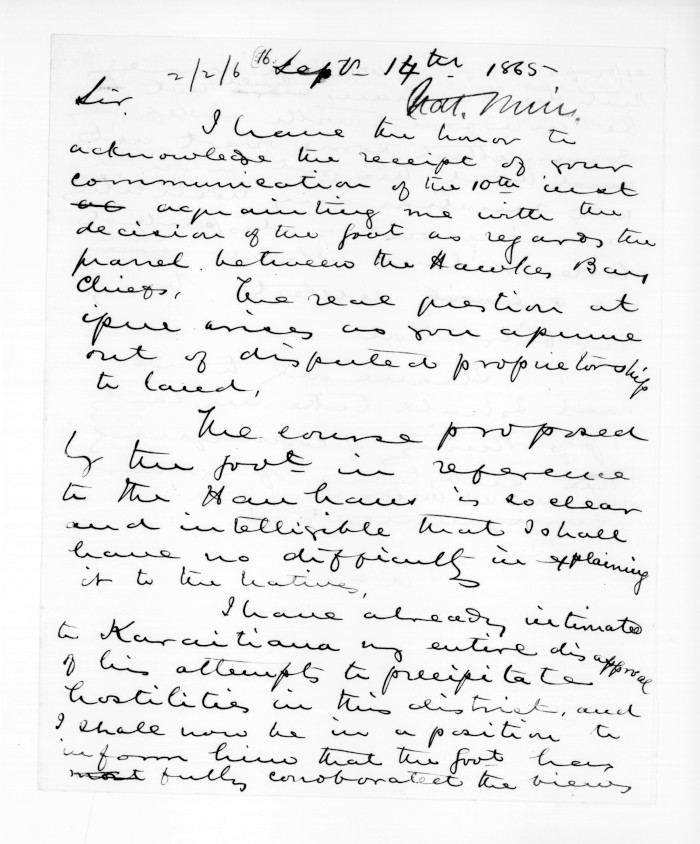 2/2/6 Septr 14th 1865
Nat. Minr.
Sir.
I have the honor to
acknowledge the receipt of your
communication of the 10th inst
as acquainting me with the
decision of the Govt as regards the
quarrel between the Hawkes Bay
Chiefs, The real question at
issue arises as you assume
out of disputed proprietorship
to land,
The course proposed
by the Govt in reference
to the Hauhaus is so clear
and intelligible that I shall
have no difficulty in explaining
it to the Natives,
I have already intimated
to Karaitiana my entire disapproval
of his attempts to precipitate
hostilities in this district, and
I shall now be in a position to
inform him that the Govt has
most fully corroborated the views